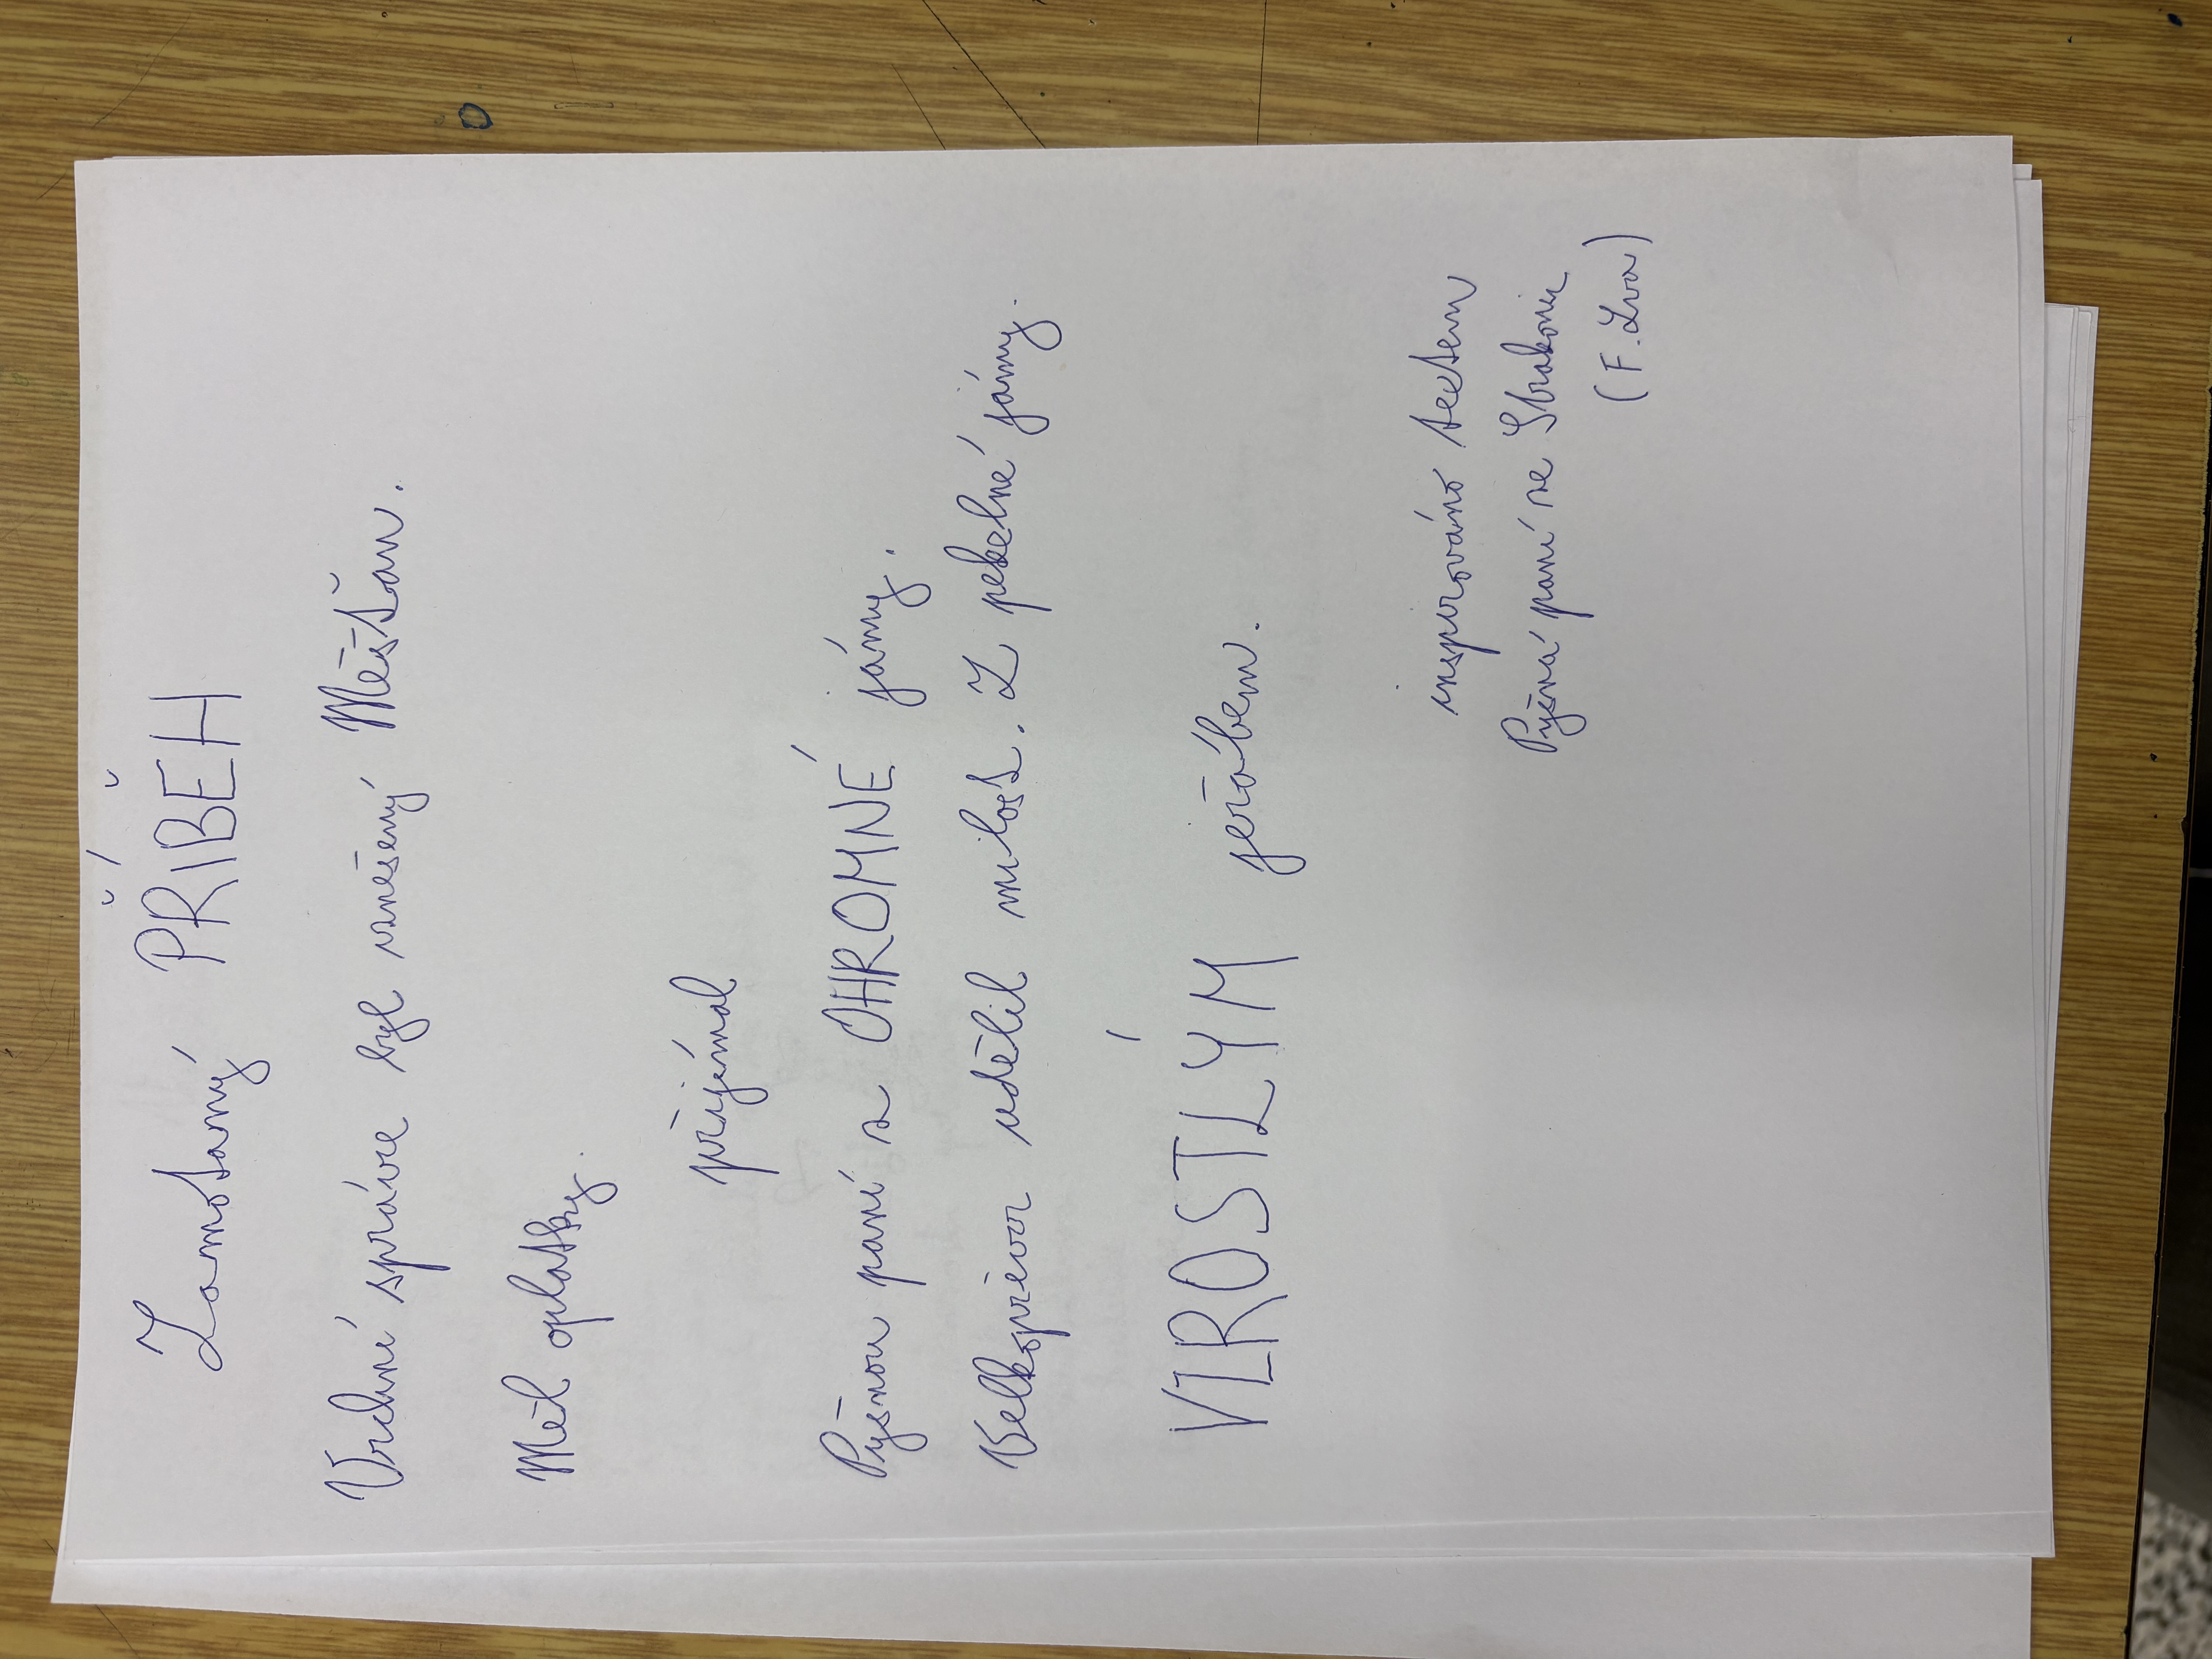 Zamotaný PŘÍBĚH
Vrchní správce byl vznešený Měšťan.
Měl oplatky.
přijímal
Pyšnou paní z OHROMNÉ jámy.
Velkopřevor udělil milost. Z pekelné jámy.
VZROSTLÝM jeřábem.
inspirováno textem
Pyšná paní ze Strakonic
(F. Lva)